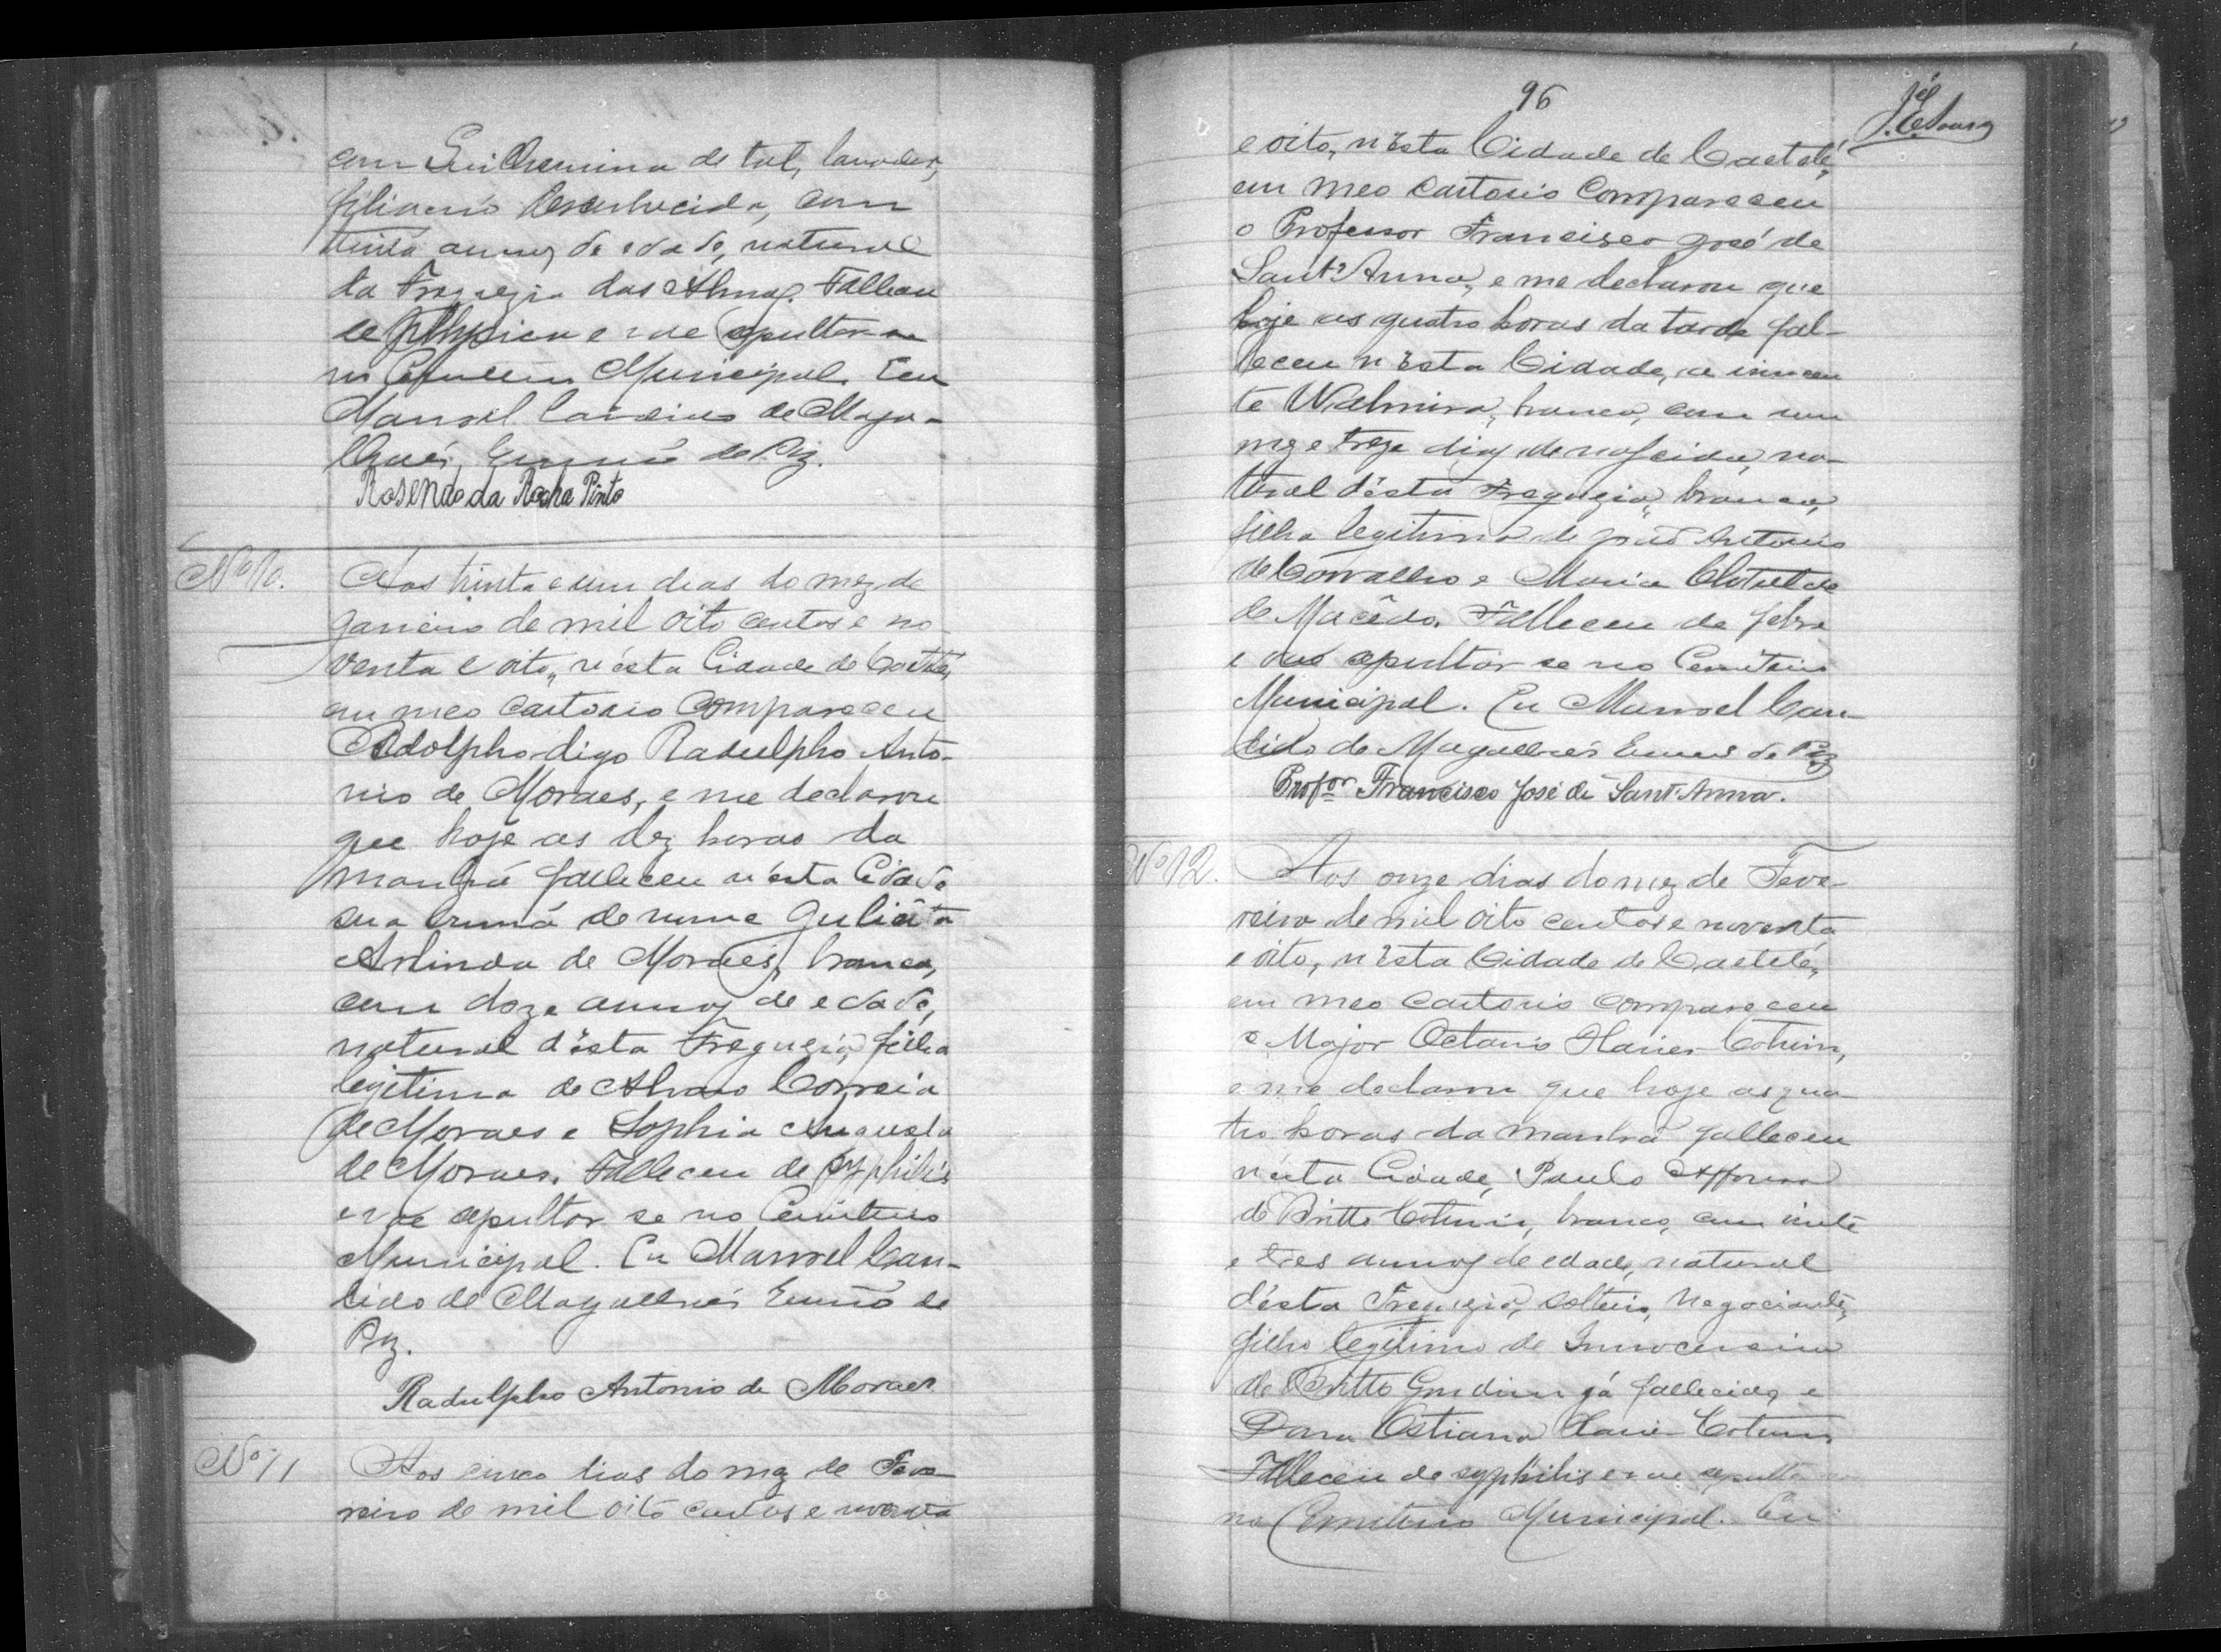 com Guilhermina de tal, lavrador,
filiação desconhecida, com
trinta annos de edade, natural
da Freguezia das Almas. Falleceu
de phthysica e vae sepultar-se
no Cemiterio Municipal. Eu
Manoel Candido de Maga-
lhães, Escrivão de Paz.
Rosendo da Rocha Pinto
Nº 10.
Aos trinta e um dias do mez de
Janeiro de mil oito centos e no
venta e oito, n'ésta Cidade de Caetité,
em meo Cartorio Compareceu
Adolpho digo Radulpho Anto-
nio de Moraes, e me declarou
que hoje as dez horas da
manhã falleceu n'ésta Cidade
sua irmã de nome Julieta
Arlinda de Moraes, branca,
com doze annos de edade,
natural d'ésta Freguezia, filha
legitima de Alvaro Correia
de Moraes e Sophia Augusta
de Moraes. Falleceu de syphilis
e vae sepultar se no Cemiterio
Municipal. Eu Manoel Can-
dido de Magalhães Escrivão de
Paz.
Radulpho Antonio de Moraes
Nº 11
Aos cinco dias do mez de Feve-
reiro de mil oito centos e noventa
96
e oito, n'ésta Cidade de Caetité,
em meo Cartorio Compareceu
o Professor Francisco José de
Sant'Anna, e me declarou que
hoje as quatro horas da tarde fal-
leceu n'ésta Cidade, a innocen
te Walmira, branca, com um
mez e treze dias de nascida, na-
tural d'ésta Freguezia, branca,
filha legitima de João Antonio
de Carvalho e Maria Clotilde
de Macêdo. Falleceu de febre
e vae sepultar se no Cemiterio
Municipal. Eu Manoel Can-
dido de Magalhães Escrivão de Paz
Profor Francisco José de Sant'Anna.
Nº 12.
Aos onze dias do mez de Feve-
reiro de mil oito centos e noventa
e oito, n'ésta Cidade de Caetité,
em meo Cartorio compareceu
o Major Octavio Xavier Cotrim,
e me declarou que hoje as qua-
tro horas da manhã falleceu
n'ésta Cidade, Paulo Affonso
de Britto Cotrim, branco, com vinte
e tres annos de edade, natural
d'ésta Freguezia, solteiro, Negociante,
filho legitimo de Innocencio
de Britto Gondim já fallecido, e
Dona Ostiana Xavier Cotrim
Falleceu de syphilis e vae sepultar se
no Cemiterio Municipal. Eu